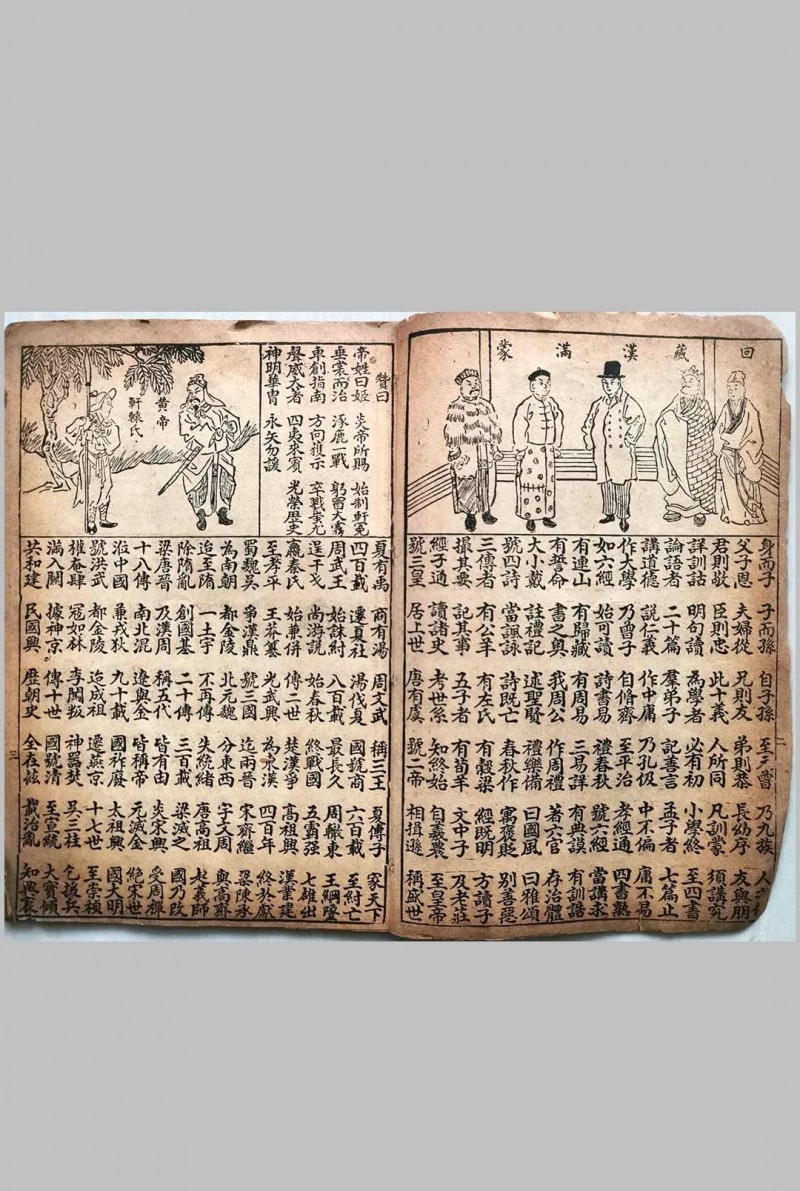 回藏漢滿蒙
身而子 子而孫 自子孫 至玄曾 乃九族 人
父子恩 夫婦從 兄則友 弟則恭 長幼序 友與朋
君則敬 臣則忠 此十義 人所同 凡訓蒙 須講究
詳訓詁 明句讀 為學者 必有初 小學終 至四書
論語者 二十篇 羣弟子 記善言 孟子者 七篇止
講道德 說仁義 作中庸 乃孔伋 中不偏 庸不易
作大學 乃曾子 自脩齊 至平治 孝經通 四書熟
如六經 始可讀 詩書易 禮春秋 號六經 當講求
有連山 有歸藏 有周易 三易詳 有典謨 有訓誥
有誓命 書之奧 我周公 作周禮 著六官 存治體
大小戴 註禮記 述聖賢 禮樂備 曰國風 曰雅頌
號四詩 當諷詠 詩既亡 春秋作 寓褒貶 別善惡
三傳者 有公羊 有左氏 有穀梁 經既明 方讀子
撮其要 記其事 五子者 有荀羊 文中子 及老莊
經子通 讀諸史 考世系 知終始 自羲農 至皇帝
號三皇 居上世 唐有虞 號二帝 相揖遜 稱盛世
二
贊曰
帝姓曰姬 炎帝所賜 始制軒冕
垂裳而治 涿鹿一戰 躬冒大霧
車創指南 方向獲示 卒戮蚩尤
聲威大著 四夷來賓 光榮歷史
神明華冑 永矢勿諼
黃帝
軒轅氏
夏有禹 商有湯 周文武 稱三王 夏傳子 家天下
四百載 遷夏社 湯伐夏 國號商 六百載 至紂亡
周武王 始誅紂 八百載 最長久 周轍東 王綱墜
逞干戈 尚游說 始春秋 終戰國 五霸强 七雄出
嬴秦氏 始兼併 傳二世 楚漢爭 高祖興 漢業建
至孝平 王莽篡 光武興 為東漢 四百年 終於獻
蜀魏吳 爭漢鼎 號三國 迄兩晉 宋齊繼 梁陳承
為南朝 都金陵 北元魏 分東西 宇文周 與高齊
迨至隋 一土宇 不再傳 失統緒 唐高祖 起義師
除隋亂 創國基 二十傳 三百載 梁滅之 國乃改
梁唐晉 及漢周 稱五代 皆有由 炎宋興 受周禪
十八傳 南北混 遼與金 皆稱帝 元滅金 絕宋世
涖中國 兼戎狄 九十載 國祚廢 太祖興 國大明
號洪武 都金陵 造成祖 遷燕京 十七世 至崇禎
權奄肆 寇如林 李闖叛 神器焚 吳三柱 乞援兵
滿入關 據神京 傳十世 國號清 至宣統 大寶傾
共和建 民國興 歷朝史 全在茲 載治亂 知興衰
三